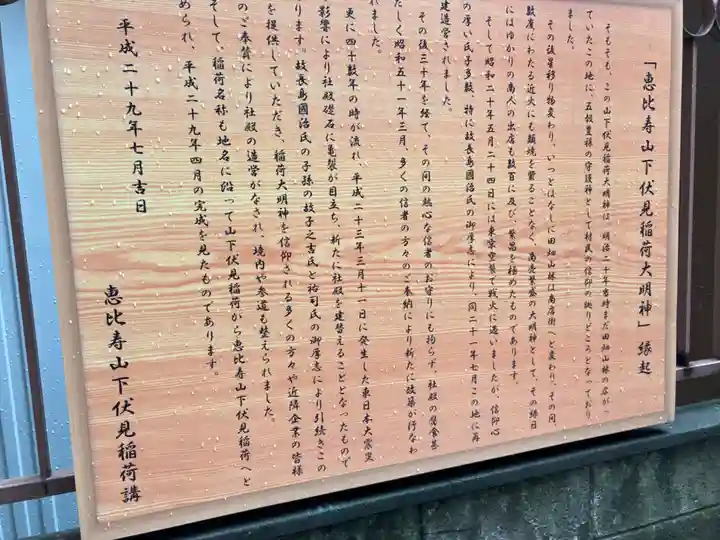 「恵比寿山下伏見稲荷大明神」縁起
そもそも、この山下伏見稲荷大明神は、明治二十年当時まだ田畑山林の広がっ
ていたこの地に、五穀豊穣の守護神として村民の信仰の拠りどころとなっており
ました。
その後星移り物変わり、いつとはなしに田畑山林は商店街へと変わり、その間、
数度にわたる近火にも類焼を蒙ることなく、商売繁盛の大明神として、その縁日
にはゆかりの商人の出店も数百に及び、繁昌を極めたものであります。
そして昭和二十年五月二十四日には東京空襲で戦火に遭いましたが、信仰心
の厚い氏子多数、特に故長島國治氏の御厚志により、同二十一年七月この地に再
建造営されました。
その後三十年を経て、その間の熱心な信者のお守りにも拘らず、社殿の腐食甚
だしく昭和五十一年三月、多くの信者の方々のご奉納により新たに改築が行なわ
れました。
更に四十数年の時が流れ、平成二十三年三月十一日に発生した東日本大震災
影響により社殿礎石に亀裂が目立ち、新たに社殿を建替えることとなったもので
ります。故長島國治氏の子孫の故子之吉氏と裕司氏の御厚志により引続きこの
を提供していただき、稲荷大明神を信仰される多くの方々や近隣企業の皆様
のご奉賛により社殿の造営がなされ、境内や参道も整えられました。
そして、稲荷名称も地名に沿って山下伏見稲荷から恵比寿山下伏見稲荷へと
められ、平成二十九年四月の完成を見たものであります。
平成二十九年七月吉日
恵比寿山下伏見稲荷講